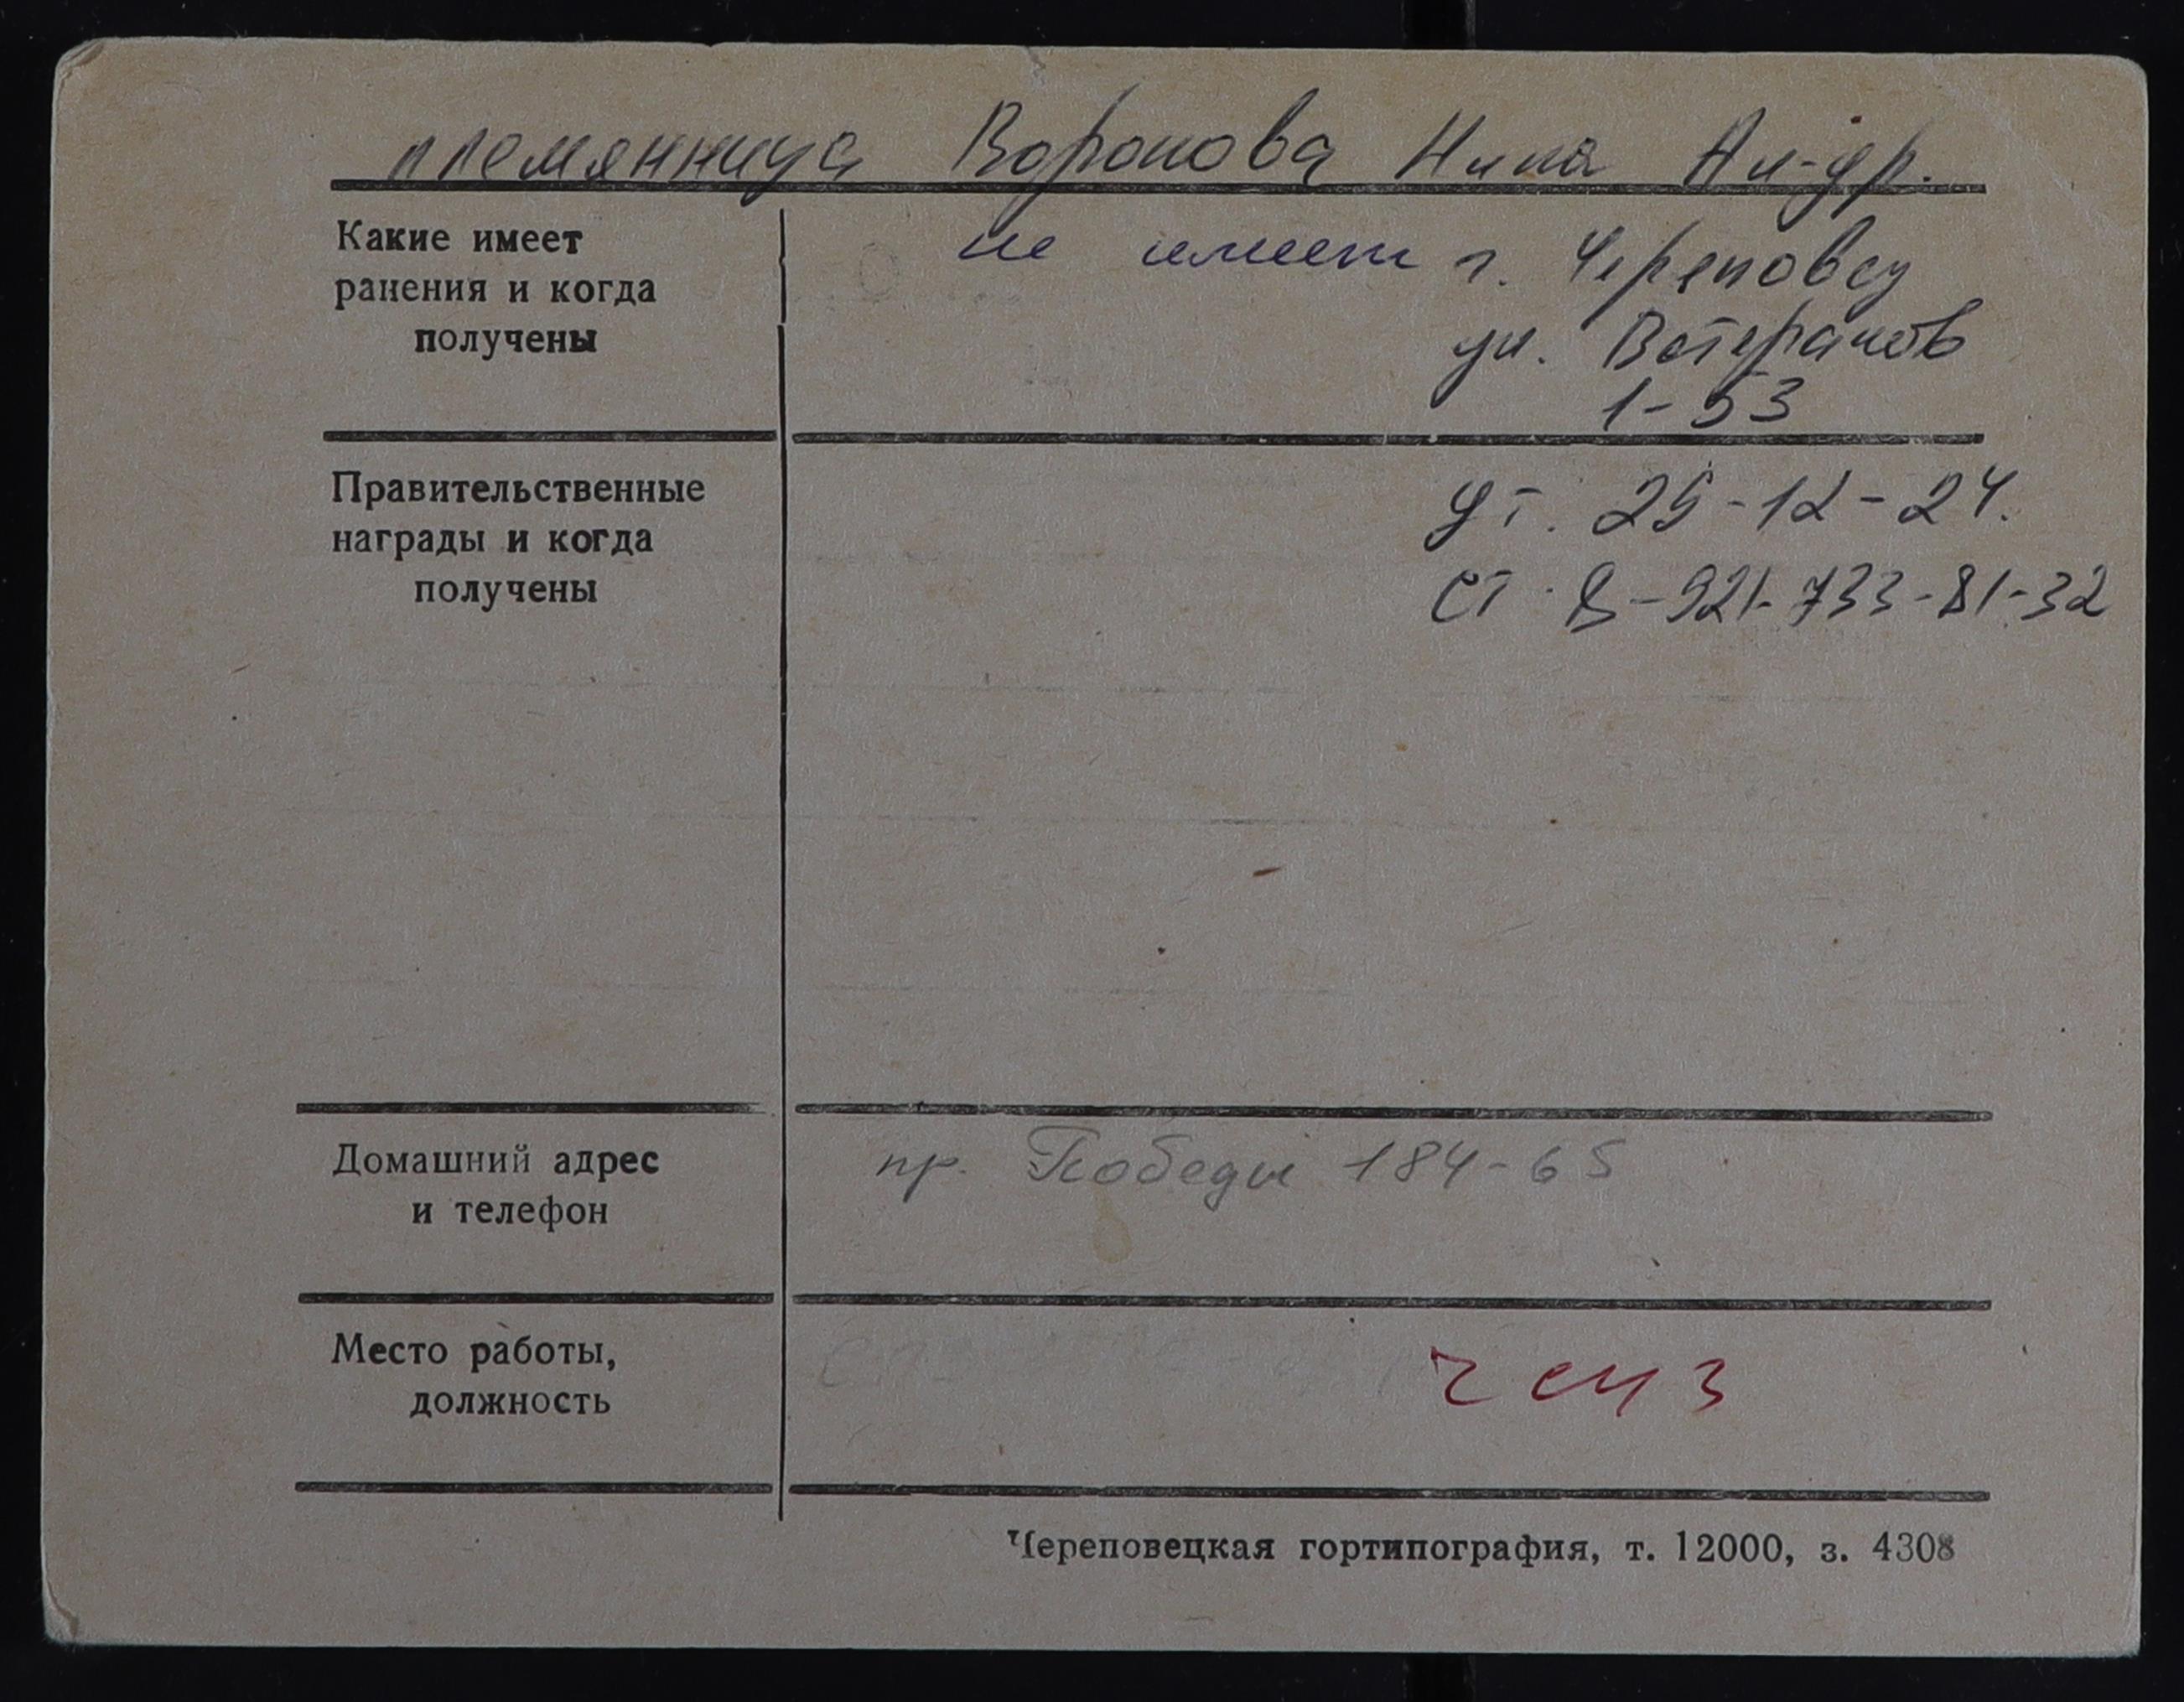 племянница Воронова Нина Ал-др.
Какие имеет
ранения и когда
получены
не имеет г. Череповец
ул. Ветеранов
1-53
Правительственные
награды и когда
получены
дт. 25-12-24.
ст. 8-921-733-81-32
Домашний адрес
и телефон
пр. Победы 184-65
Место работы,
должность
Череповецкая гортипография, т. 12000, з. 4308